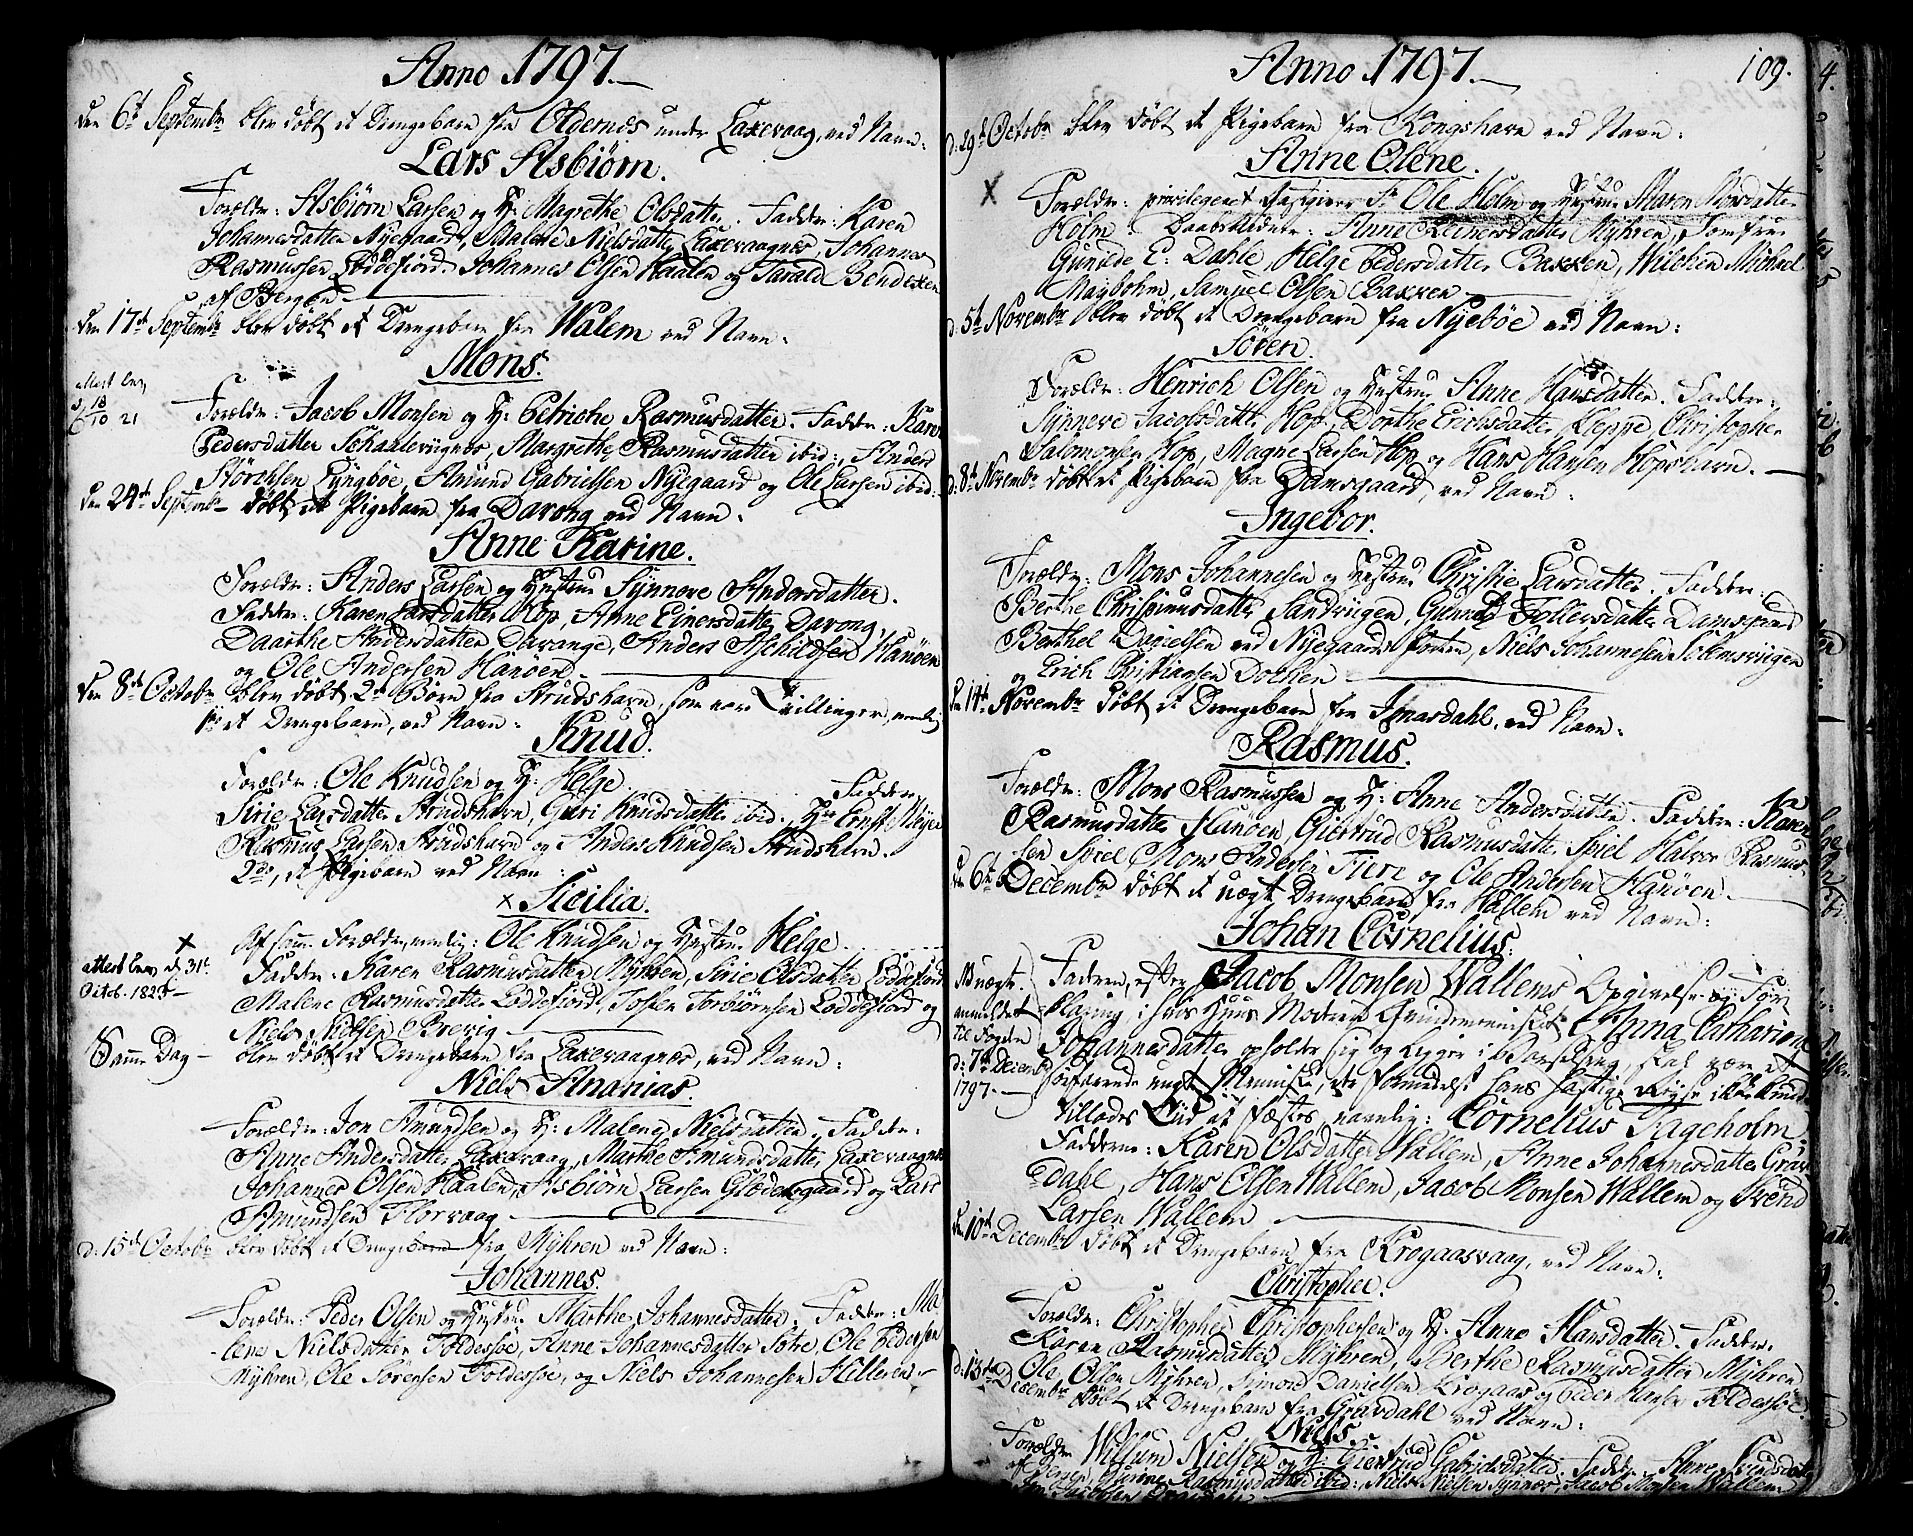 Anno 1797.
Den 6te Septembr blev døbt et Drengebarn fra Oldernæs under Laxevaag, ved Navn:
Lars Asbiørn.
Forældre: Asbiørn Larsen og H: Magrethe Olsdatter. Faddr: Karen
Johannesdatter Nyegaard, Malene Nielsdatter Laxevaagnæs, Johannes
Rasmussen Loddefiord. Johannes Olsen Haalen og Tarald Bendexen
af Bergen
Den 17de Septembr blev døbt et Drengebarn fra Walem ved Navn:
Mons.
attest lev.
d. 18/10 21
Forældr: Jacob Monsen og H: Petriche Rasmusdatter. Faddr: Karen
Pedersdatter Schaaleviignæs, Margrethe Rasmusdatter ibid:, Anders
Størchsen Lyngbøe, Amund Gabrielsen Nyegaard og Ole Larsen ibid:
Den 24de Septembr døbt et Pigebarn fra Davong ved Navn:
Anne Karine.
Forældr: Anders Larsen og Hustrue Synneve Andersdatter.
Faddr: Karen Larsdatter Hop, Anne Einersdatter Davong,
Daarthe Andersdatter Davange, Anders Aschildsen Hanøen
og Ole Andersen Hanøen.
Den 8de Octobr blev døbt 2de Børn fra Strudshavn, som var Tvillinger, nemlig
1mo et Drengebarn, ved Navn:
Knud.
Forældr: Ole Knudsen og H: Helge
Faddr:
Sirie Larsdatter Strudshavn, Guri Knudsdatter ibid:, Hr Ernst Meyer
Rasmus Larsen Strudshavn og Anders Knudsen Strudshavn.
2do, et Pigebarn ved Navn:
x Sicilia.
Af samme Forældre, nemlig: Ole Knudsen og Hustrue Helge
x
attest lev. d. 31te
Octob. 182
Faddr: Karen Rasmusdatter Myhren, Sirie Olsdatter Loddefiord
Malene Rasmusdatter Loddefiord, Tosten Torbiørnsen Loddefiord og
Niels Nielsen Brevig
Samme Dag blev døbt et Drengebarn fra Laxevaagnæs, ved Navn:
Niels Ananias.
Forældr: Jon Amundsen og H: Malene Nielsdatter. Faddr:
Anne Andersdatter Laxevaag, Marthe Amundsdatter Laxevaagnæs
Johannes Olsen Haalen, Asbiørn Larsen Glædesgaard og Lars
Amundsen Florvaag
d: 15de Octobr blev døbt et Drengebarn fra Myhren ved Navn:
Johannes.
Forældr: Peder Olsen og Hustrue Marthe Johannesdatter. Faddr: Ma
lene Nielsdatter Toldessøe, Anne Johannesdatter Sotre, Ole Pedersen
Myhren, Ole Sørensen Toldessøe, og Niels Johannesen Hilleren
Anno 1797. 109.
d: 29de Octobr blev døbt et Pigebarn fra Kongshavn ved Navn:
Anne Olene.
x
Forældr: privilegeret Gastgiver Sr Ole Holm og Hustrue Maren Monsdatter
Holm. Daabsvidner: Anne Reinersdatter Myhren, Jomfrue
Gunilde E: Dahle, Helge Pedersdatter Baxken, Wilchen Michael
Maybohm, Samuel Olsen Baxken
d. 5te Novembr blev døbt et Drengebarn fra Nyebøe ved Navn:
Søren.
Forældr: Henrich Olsen og Hustrue Anne Hansdatter. Faddr:
Synneve Jacobsdatter Hop, Dorthe Erichsdatter Kleppe, Christopher
Salomonsen Hop, Magne Larsen Hop og Hans Hansen Hopshavn.
d. 8de Novembr døbt et Pigebarn fra Damsgaard, ved Navn:
Ingebor.
Forældr: Mons Johannesen og Hustrue Christie Larsdatter. Faddr:
Berthe Christinusdatter Sandviigen, Gunild Follersdatter Damsgaard
Berthel Danielsen ved Nyegaards Porten, Niels Johannesen Solemsviigen
og Erich Christiansen Dochen
Den 14de Novembr døbt et Drengebarn fra Jonasdahl, ved Navn:
Rasmus.
Forældr: Mons Rasmussen og H: Anne Andersdatter. Faddr: Karen
Rasmusdatter Hanøen, Giertrud Rasmusdatter Spiel, Halvor Rasmus-
sen Spiel, Mons Andersen Fiere og Ole Andersen Hanøen.
Den 6te Decembr døbt et uægt Drengebarn fra Wallem ved Navn:
Johan Cornelius.
uægte.
anmeldet
til Fogden
d: 7de Decembr
1797.
Faderen, efter Jacob Monsen Wallems Opgivelse og
i hvis Huus Moderen Qvindemennisket Anna Catharine
Johannesdatter opholder sig og ligger i Barselseng, skal være et
søefarende ungt Menniske, hvis
tillades Tiid at fæstes, navnlig: Cornelius Tageholm.
Fadderne: Karen Olsdatter Wallem, Anne Johannesdatter Grav-
dahl, Hans Olsen Wallem, Jacob Monsen Wallem og Svend
Larsen Wallem
Den 10de Decembr døbt et Drengebarn fra Krogaasvaag, ved Navn:
Christopher.
Forældr: Christopher Christophersen og H: Anne Hansdatter. Faddr:
Karen Rasmusdatter Myhren, Berthe Rasmusdatter Myhren
Ole Olsen Myhren, Simon Danielsen Krogaas og Peder Hansen Toldessøe.
d: 13de Decembr døbt et Drengebarn fra Gravdahl ved Navn:
Niels.
Forældr: Willum Nielsen og H: Giertrud Gabrielsdatter. Faddr: Anne Svendsdatter
Rasmusdatter ibid:, Niels Nielsen Synnes, Jacob Monsen Wallem